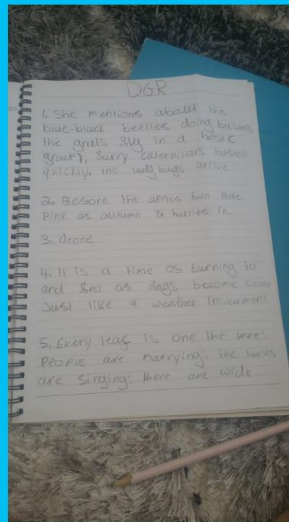 DGR
1. She mentions about the
blue-black beetles doing
the gnats fly in a
group, furry caterpillars hasten
quickly, the ladybugs arrive
2. Before the apples turn pale
Pink as autumn & hurries in.
3. drone
4. It is a time of turning to
and fro as days become
Just like a weather
5. Every leaf is one the tree:
People are marrying: the larks
are singing: there are wide